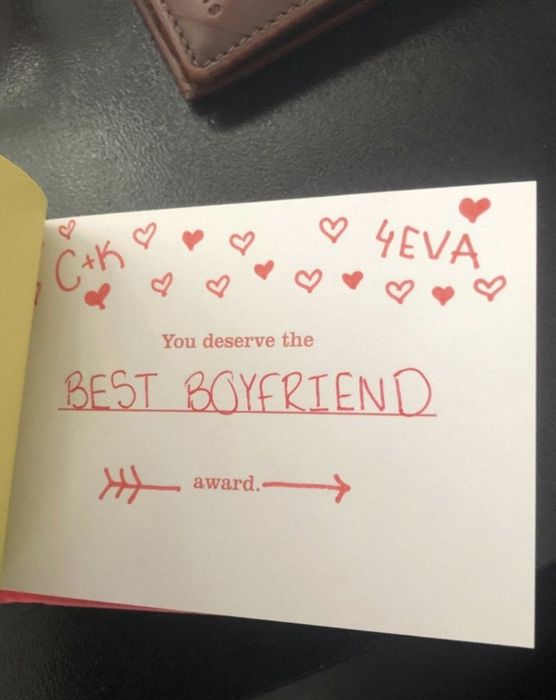 C+K 4EVA
You deserve the
BEST BOYFRIEND
award.